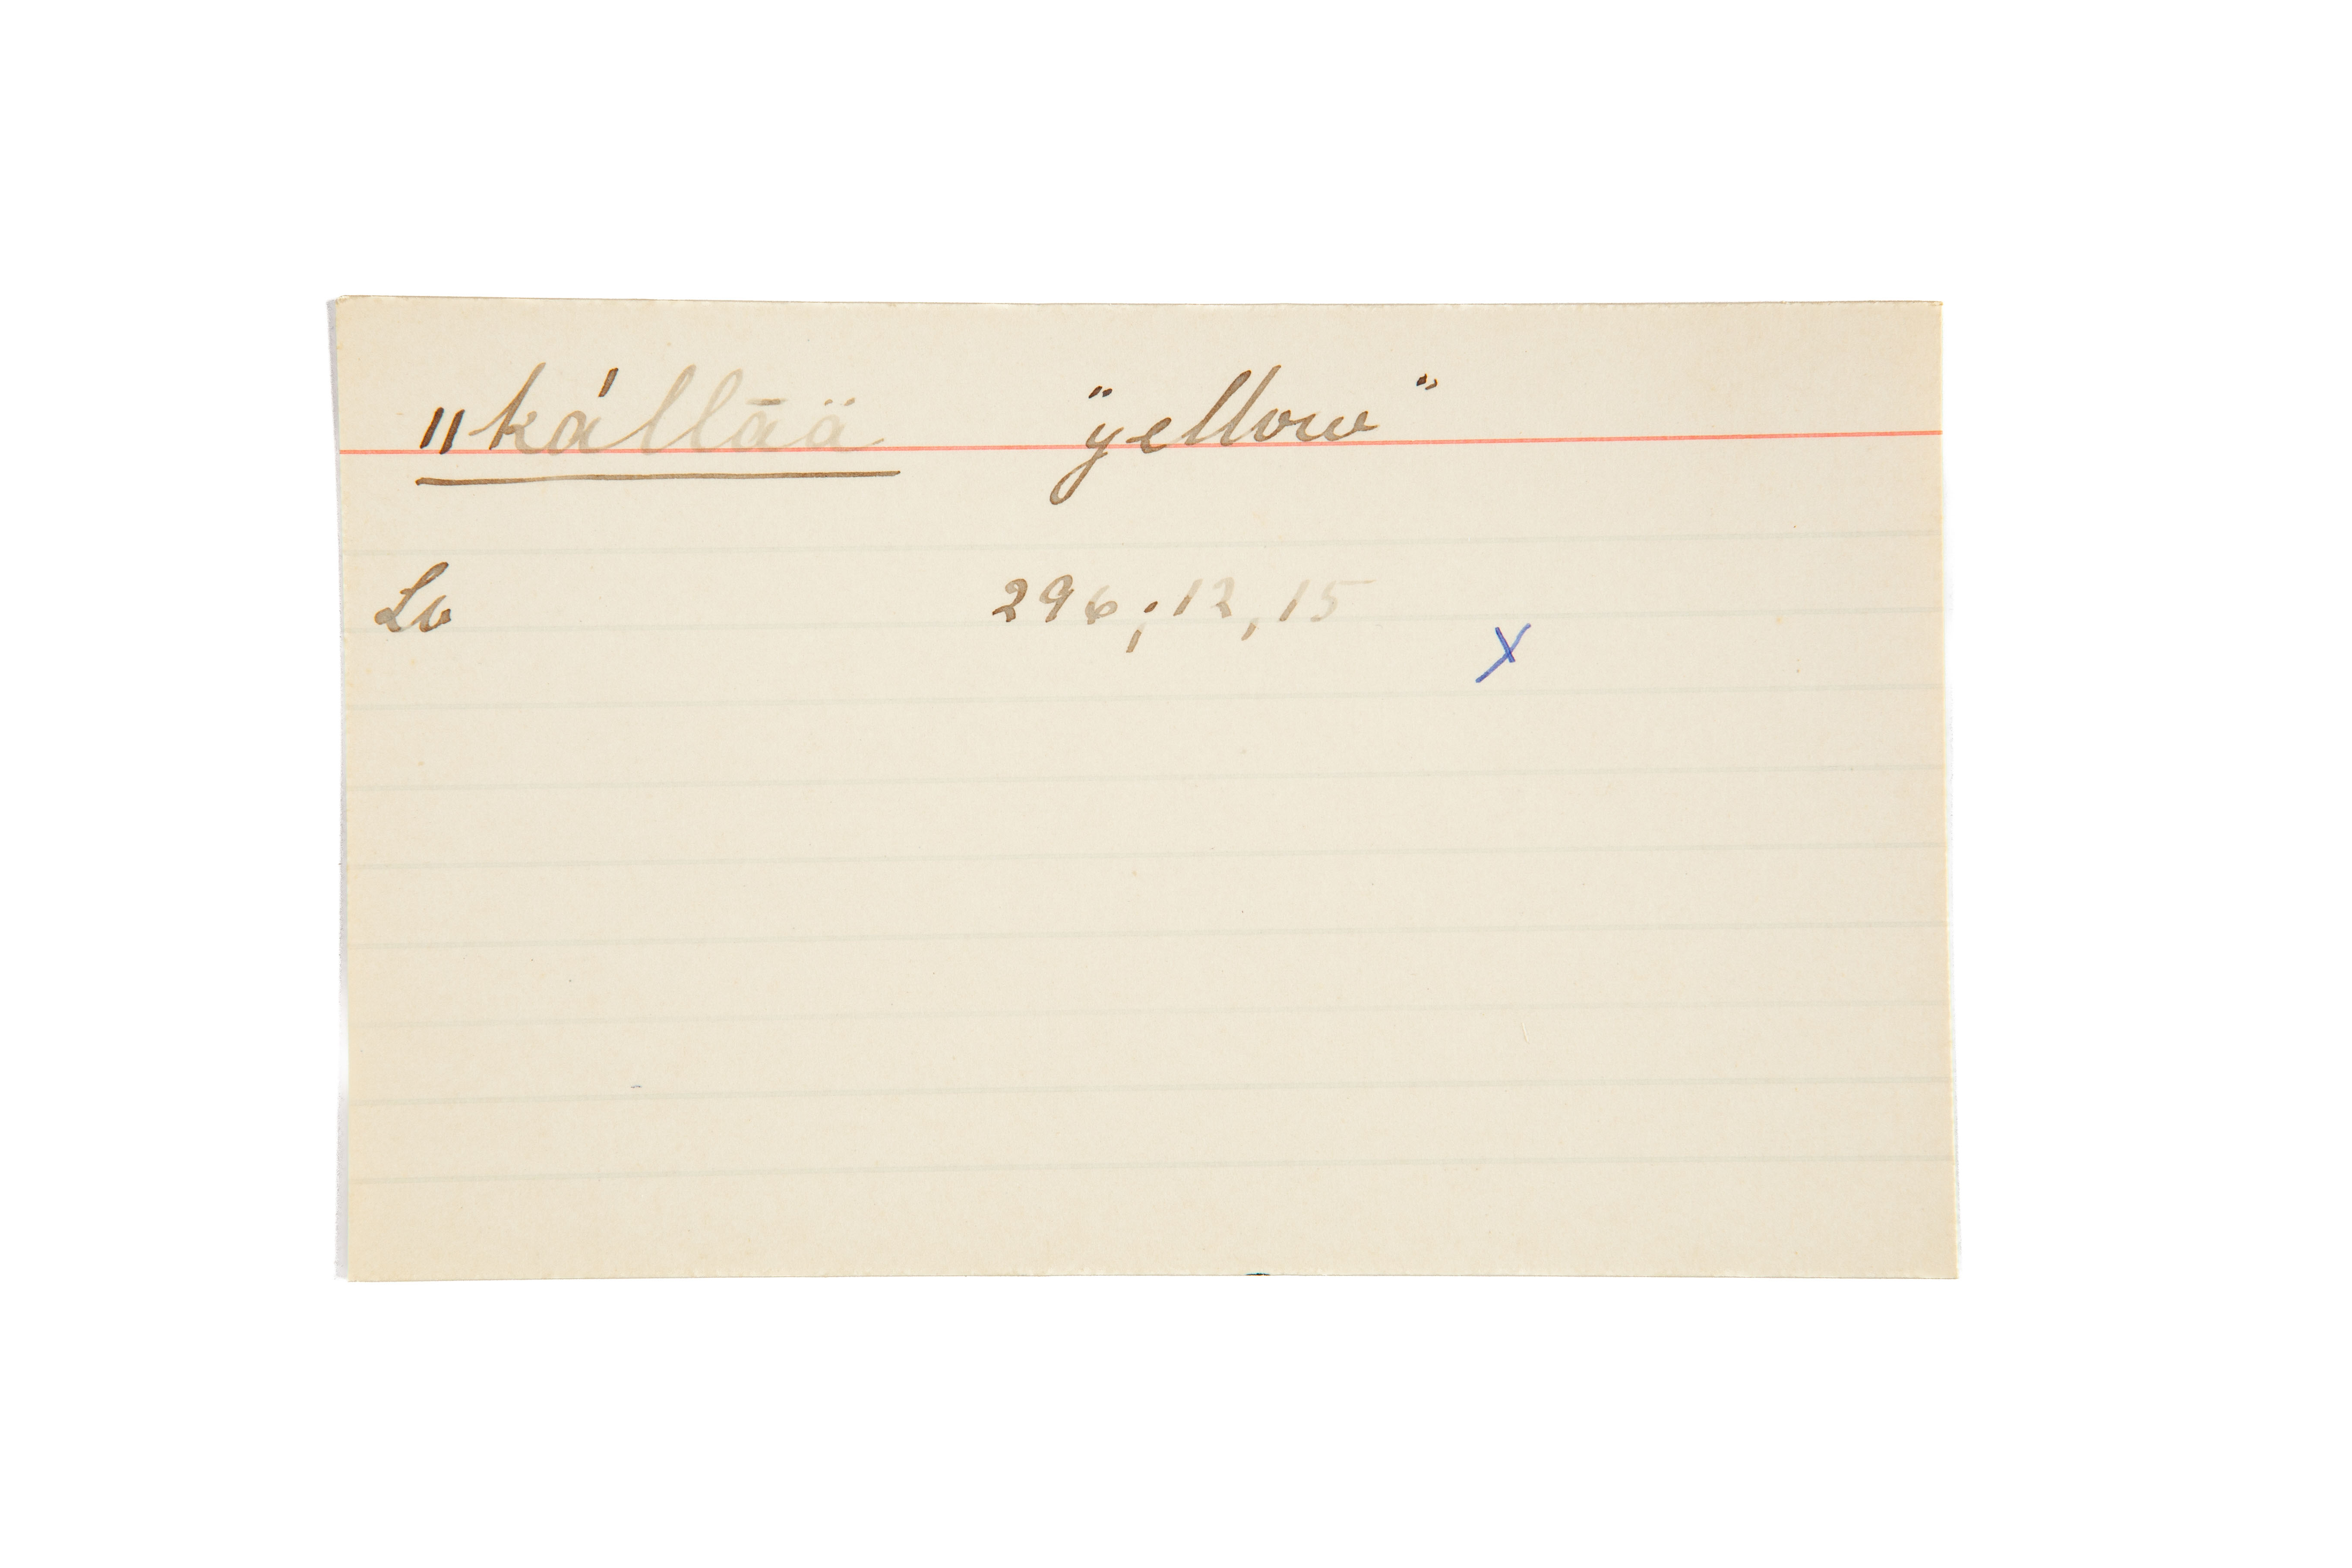 "kállää "yellow"
Lv 296; 12, 15
x